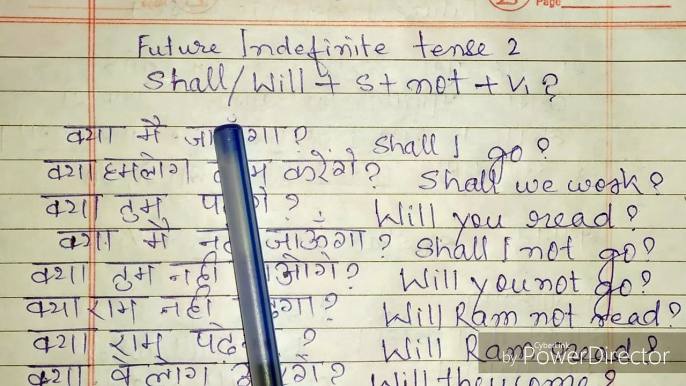 Page
Future Indefinite tense 2
Shall/Will + S + not + V₁ ?
क्या मै ? Shall I go ?
क्या हमलोग करेंगे ? Shall we work ?
क्या तुम ? Will you read ?
क्या मै जाऊँगा ? Shall I not go ?
क्या तुम नही ? Will you not go ?
क्या राम नही ? Will Ram not read ?
क्या राम ? Will Ram read ?
क्या वे लोग ? Will they come ?
CyberLink
by PowerDirector